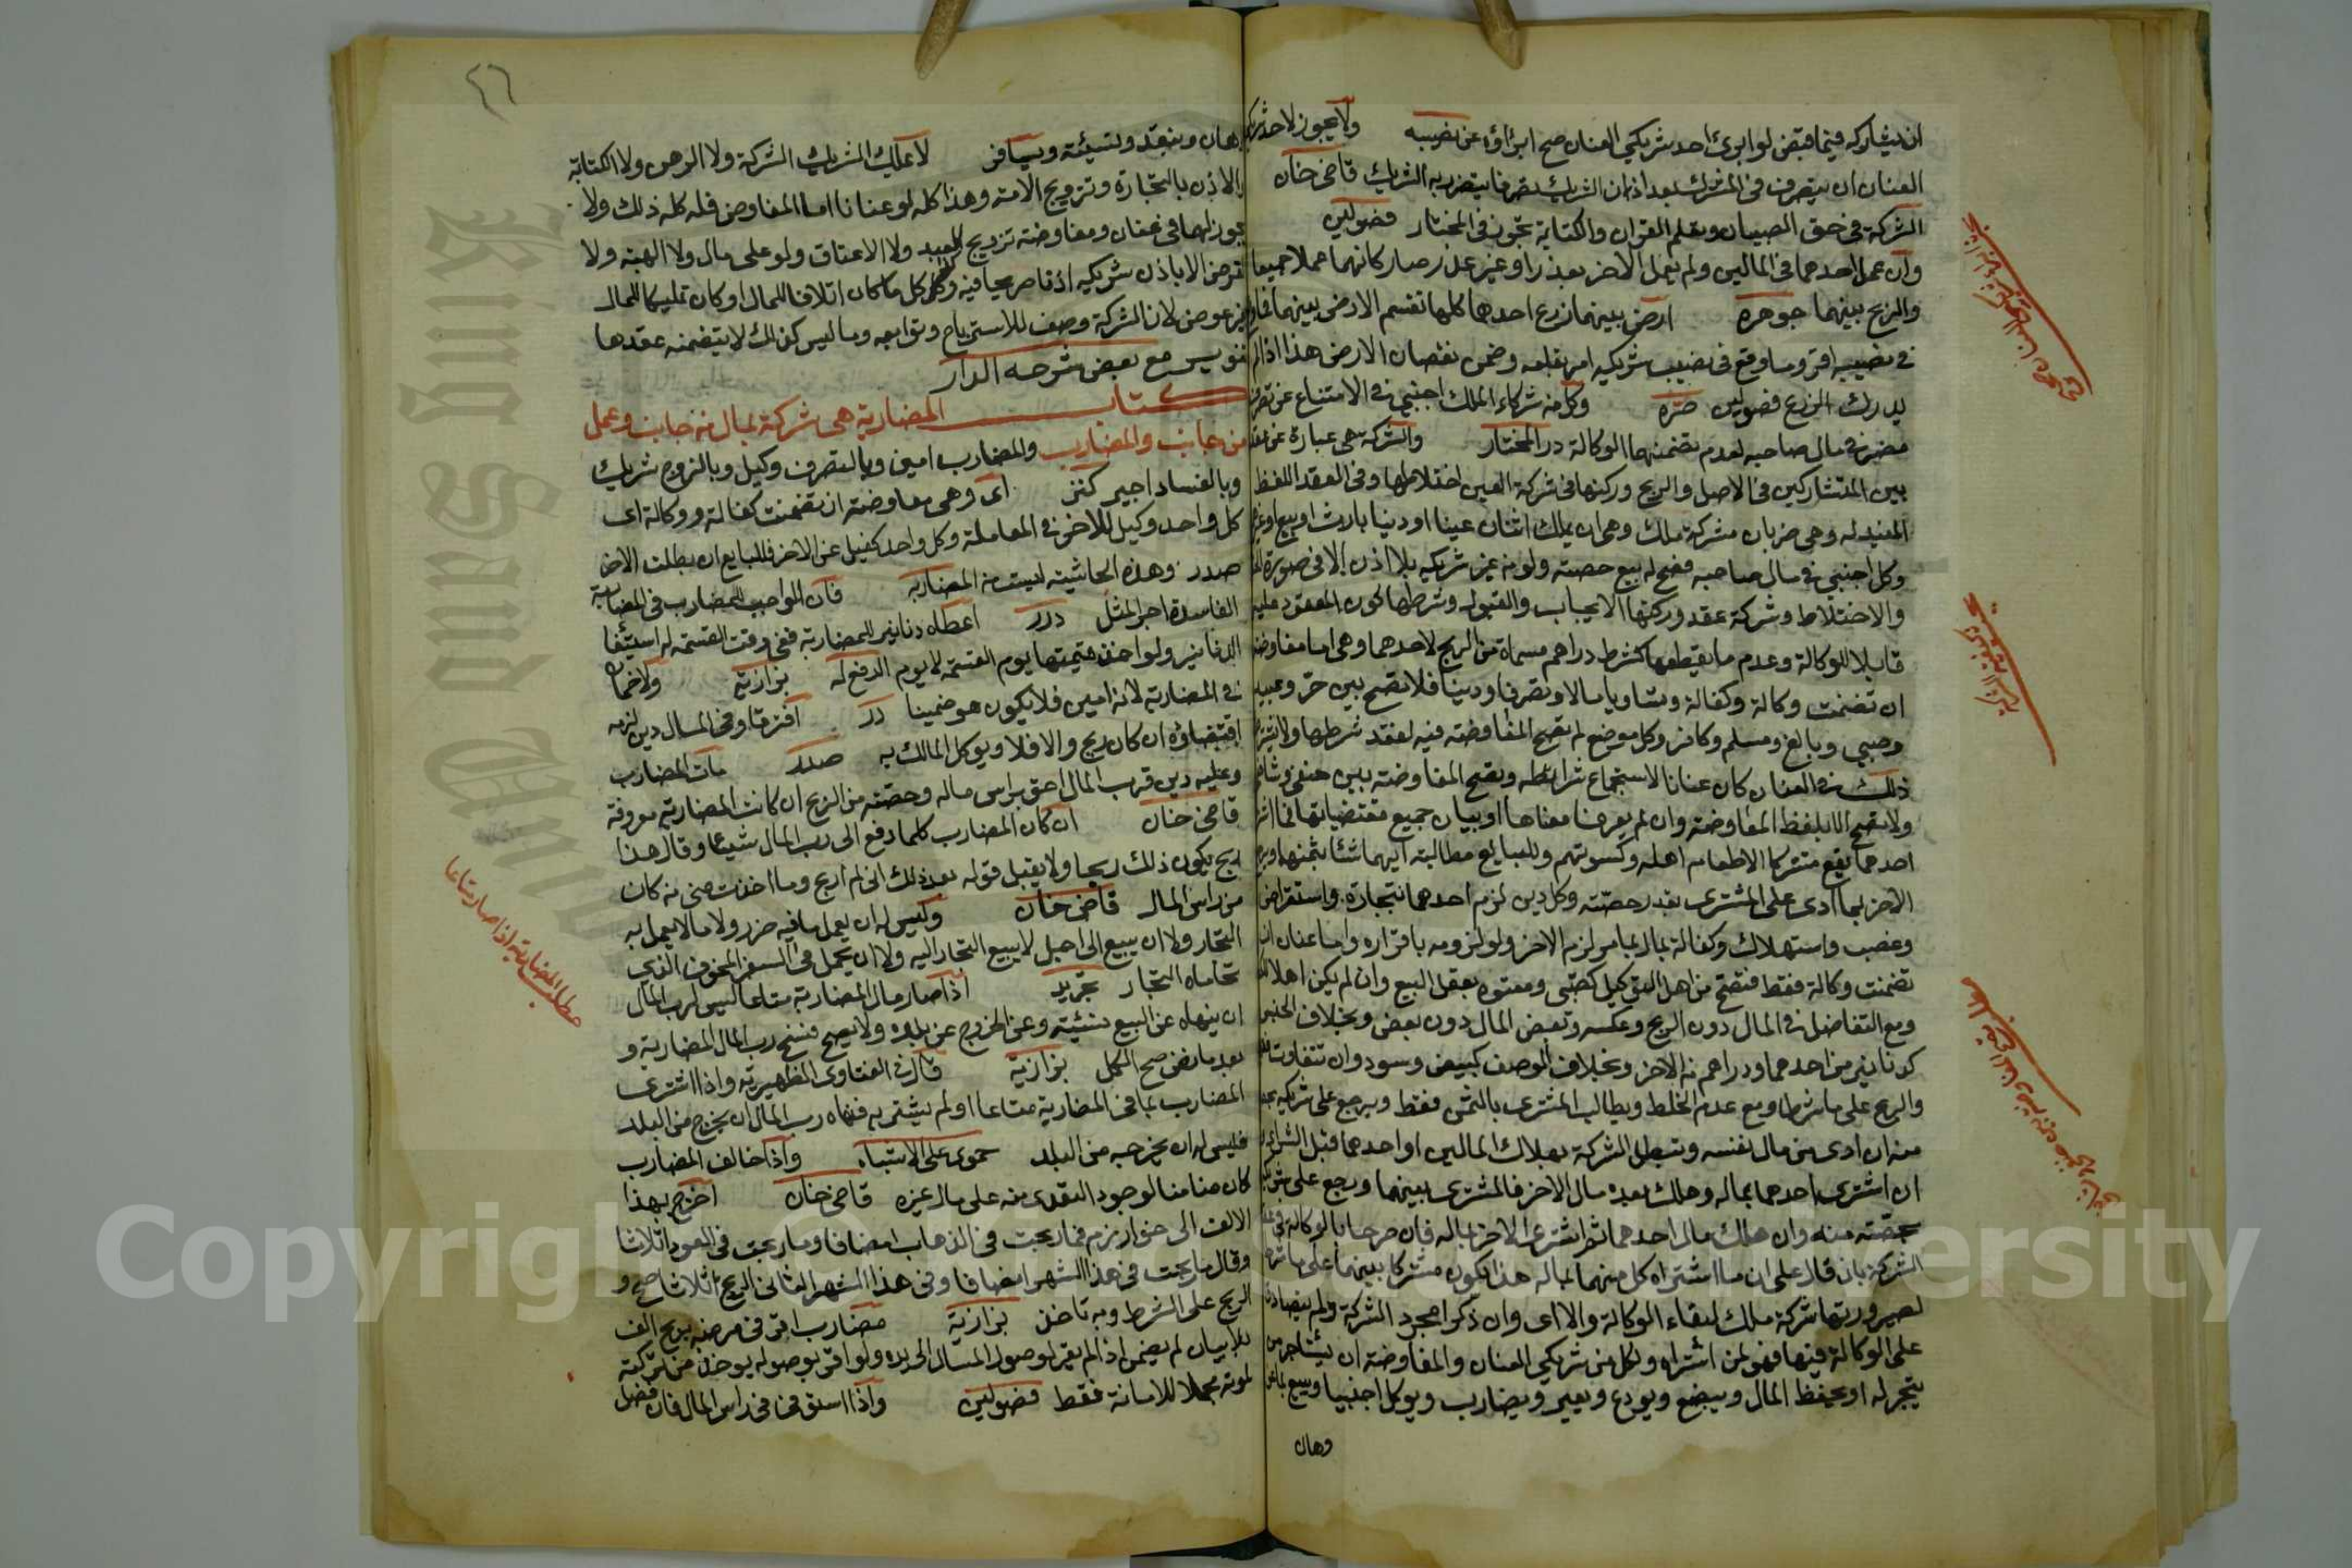 ان يشاركه فيما قبض لو ابرئ احد شريكي العنان صح ابراؤه عن نصيبه ولا يجوز لاحد شريكي
العنان ان يتصرف في المشترك بعد اذان الشريك تصرفا يتضرر به الشريك قاضى خان
الشركة في حق الصبيان وتعلم القران والكتابة تجوز في المختار فصولين
وان عمل احدهما في المالين ولم يعمل الاخر بعذر او غير عذر صار كانهما عملا جميعا
والربح بينهما جوهره ارض بينهما زرع احدهما كلها تقسم الارض بينهما فما وقع
في نصيبه اقر وما وقع في نصيب شريكه امر بقلعه وضمن نقصان الارض هذا اذا لم
يدرك الزرع فصولين وكل من شركاء الملك اجنبي في الامتناع عن تصرف
مضر في مال صاحبه لعدم تضمنها الوكالة در المختار والشركة هي عبارة عن عقد
بين المتشاركين في الاصل والربح وركنها في شركة العين اختلاطها وفي العقد اللفظ
المفيد له وهي ضربان شركة ملك وهي ان يملك اثنان عينا او دينا بارث او بيع او غيره
وكل اجنبي في مال صاحبه فصح له بيع حصته ولو من غير شريكه بلا اذن الا في صورة الخلط
والاختلاط وشركة عقد وركنها الايجاب والقبول وشرطها كون المعقود عليه
قابلا للوكالة وعدم ما يقطعها كشرط دراهم مسماة من الربح لاحدهما وهي اما مفاوضة
ان تضمنت وكالة وكفالة وتساويا مالا وتصرفا ودينا فلا تصح بين حر وعبد
وصبي وبالغ ومسلم وكافر وكل موضع لم تصح المفاوضة فيه لفقد شرطها ولا يشترط
ذلك في العنان كان عنانا لاستجماع شرائطه وتصح المفاوضة بين حنفي وشافعي
ولا تصح الا بلفظ المفاوضة وان لم يعرفا معناها او بيان جميع مقتضياتها فما اشتراه
احدهما يقع مشتركا الا طعام اهله وكسوتهم وللبايع مطالبة ايهما شاء بثمنها ويرجع
الاخر بما ادى على المشترى بقدر حصته وكل دين لزم احدهما بتجارة واستقراض
وغصب واستهلاك وكفالة بمال بامر لزم الاخر ولو لزومه باقراره واما عنان ان
تضمنت وكالة فقط فتصح من اهل التوكيل كصبي ومعتوه يعقل البيع وان لم يكن اهلا
ومع التفاضل في المال دون الربح وعكسه وببعض المال دون بعض وبخلاف الجنس
كدنانير من احدهما ودراهم من الاخر وبخلاف الوصف كبيض وسود وان تفاوت
والربح على ما شرطا ومع عدم الخلط ويطالب المشترى بالثمن فقط ويرجع على شريكه
منه ان ادى من مال نفسه وتبطل الشركة بهلاك المالين او احدهما قبل الشراء
ان اشترى احدهما بماله وهلك بعده مال الاخر فالمشترى بينهما ورجع على شريكه
بحصته منه وان هلك مال احدهما ثم اشترى الاخر بماله فان صرحا بالوكالة في
الشركة بان قال على ان ما اشتراه كل منهما بماله هذا يكون مشتركا بينهما على ما شرطا
لصيرورتها شركة ملك لبقاء الوكالة والا اى وان ذكرا مجرد الشركة ولم يتصادقا
على الوكالة فيها فهو لمن اشتراه ولكل من شريكي العنان والمفاوضة ان يستاجر من
يتجر له او يحفظ المال ويبضع ويودع ويعير ويضارب ويوكل اجنبيا ويبيع بما عز
وهان
٤٦
وهان وبنقد ونسيئة ويسافر لا يملك الشريك الشركة ولا الرهن ولا الكتابة
والاذن بالتجارة وتزويج الامة وهذا كله لو عنانا اما المفاوض فله كل ذلك ولا
يجوز لهما في عنان ومفاوضة تزويج العبد ولا الاعتاق ولو على مال ولا الهبة ولا
القرض الا باذن شريكه اذنا صريحا فيه وكذا كل ما كان اتلافا للمال او كان تمليكا للمال
بغير عوض لان الشركة وضعت للاسترباح وتوابعه وما ليس كذلك لا يتضمنه عقدها
تنوير مع بعض شرحه الدر
كتاب المضاربة هي شركة بمال من جانب وعمل
من جانب والمضارب والمضارب امين وبالتصرف وكيل وبالربح شريك
وبالفساد اجير كنز اى وهي مفاوضة ان تضمنت كفالة ووكالة اى
كل واحد وكيل للاخر في المعاملة وكل واحد كفيل عن الاخر فللبايع ان يطالب الاخر
صدر وهذه الحاشية ليست من المضاربة فان الواجب للمضارب في المضاربة
الفاسدة اجر المثل درر اعطاه دنانير للمضاربة ففي وقت القسمة له استيفا
الدنانير ولو اخذ قيمتها يوم القسمة لا يوم الدفع له بزازية ولا ضمان
في المضاربة لانه امين فلا يكون هو ضمينا درر افترقا وفي المال دين لزمه
اقتضاؤه ان كان ربح والا فلا ويوكل المالك به صدر مات المضارب
وعليه دين فرب المال احق براس ماله وحصته من الربح ان كانت المضاربة معروفة
قاضى خان ان كان المضارب كلما دفع الى رب المال شيئا وقال هذا
ربح يكون ذلك ربحا ولا يقبل قوله بعد ذلك انى لم اربح وما اخذت منى من كان
من راس المال قاضى خان وليس له ان يعمل ما فيه ضرر ولا ما لا يعمل به
التجار ولا ان يبيع الى اجل لا يبيع التجار اليه ولا ان يحمل في السفر المخوف الذي
تحاماه التجار تجريد اذا صار مال المضاربة متاعا ليس لرب المال
ان ينهاه عن البيع بنسيئة وعن الخروج عن بلده ولا يصح فسخ رب المال المضاربة و
بعد ما نض صح الكل بزازية قال في الفتاوى الظهيرية واذا اشترى
المضارب بما في المضاربة متاعا او لم يشتر به فنهاه رب المال ان يخرج من البلد
فليس له ان يخرجه من البلد حموى على الاشباه واذا خالف المضارب
كان ضامنا لوجود التعدى منه على مال غيره قاضى خان اخرج بهذا
الالف الى خوارزم فما ربحت في الذهاب انصافا وما ربحت في العود اثلاثا
وقال ما ربحت في هذا الشهر انصافا وفي هذا الشهر الثانى الربح اثلاثا صح و
الربح على الشرط وبه ناخذ بزازية مضارب اقر في مرضه بربح الف
بلا بيان لم يضمن اذا لم يقر بوصول المال الى يده ولو اقر بوصوله يوخذ من تركته
لموته مجهلا للامانة فقط فصولين واذا استوفى راس المال فان فضل
مطلب المضاربة اذا صار متاعا